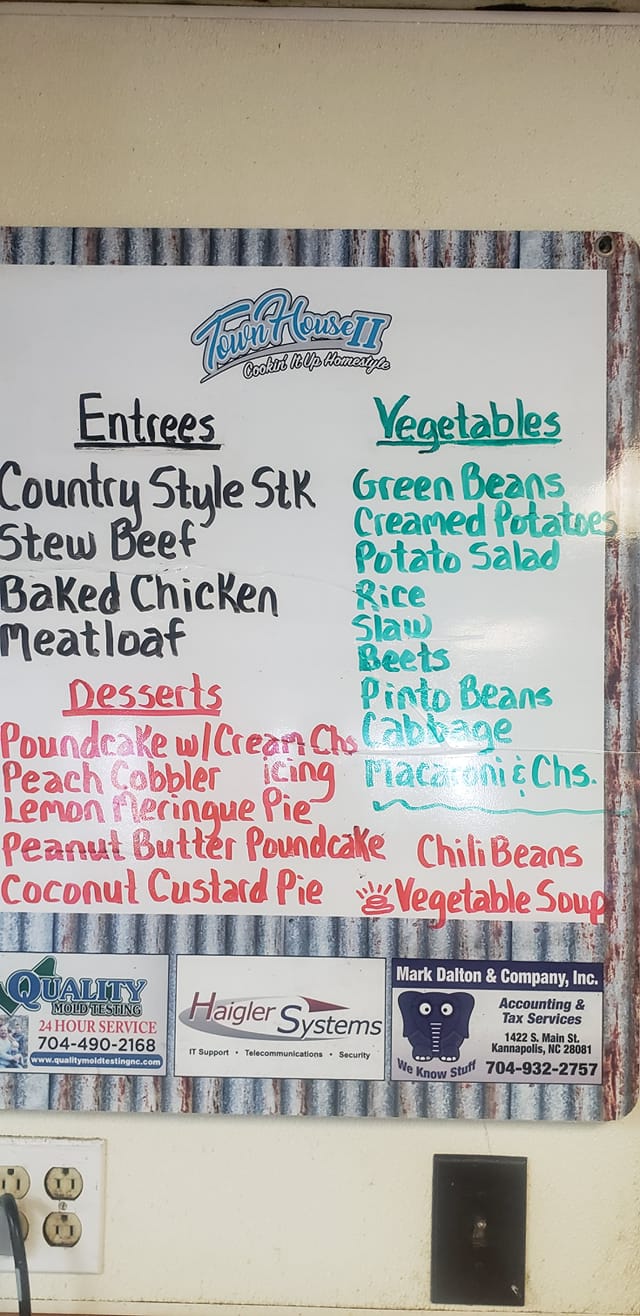 Town House II
Cookin' It Up Homestyle
Entrees
Country Style Stk
Stew Beef
Baked Chicken
Meatloaf
Vegetables
Green Beans
Creamed Potatoes
Potato Salad
Rice
Slaw
Beets
Pinto Beans
Cabbage
Macaroni & Chs.
Desserts
Poundcake w/Cream Chs
icing
Peach Cobbler
Lemon Meringue Pie
Peanut Butter Poundcake
Coconut Custard Pie
Chili Beans
Vegetable Soup
QUALITY
MOLD TESTING
24 HOUR SERVICE
704-490-2168
www.qualitymoldtestingnc.com
Haigler Systems
IT Support • Telecommunications • Security
Mark Dalton & Company, Inc.
Accounting &
Tax Services
1422 S. Main St.
Kannapolis, NC 28081
We Know Stuff
704-932-2757